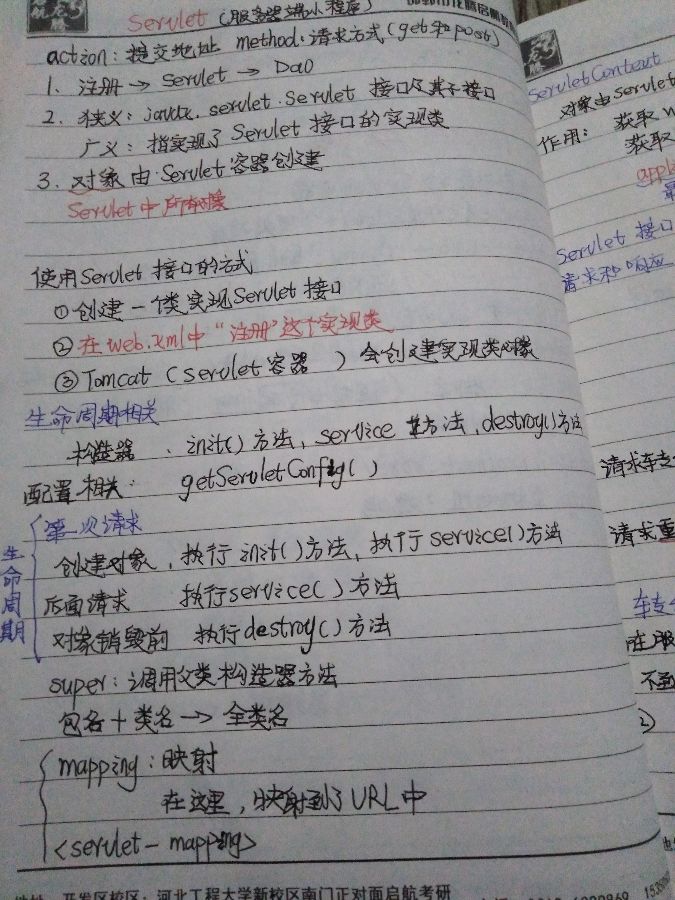 Servlet (服务器端小程序)
action: 提交地址 method: 请求方式 (get和post)
1. 注册 → Servlet → Dao
2. 狭义: javax.servlet.Servlet 接口及其子接口
广义: 指实现了 Servlet 接口的实现类
3. 对象 由 Servlet 容器创建
Servlet中所有对象
使用Servlet 接口的方式
①创建一个类实现Servlet接口
②在web.xml中"注册"这个实现类
③Tomcat (servlet容器 ) 会创建实现类对象
生命周期相关
构造器 . init()方法, service 方法, destroy()方法
配置相关: getServletConfig()
生命周期
第一次请求
创建对象, 执行init()方法, 执行service()方法
后面请求 执行service()方法
对象销毁前 执行destroy()方法
super: 调用父类构造器方法
包名+类名→全类名
mapping: 映射
在这里, 映射到了URL中
<servlet-mapping>
开发区校区: 河北工程大学新校区南门正对面启航考研
ServletContext
对象由Servlet
作用: 获取
获取
Servlet 接口
请求和响应
请求
请求重
不到